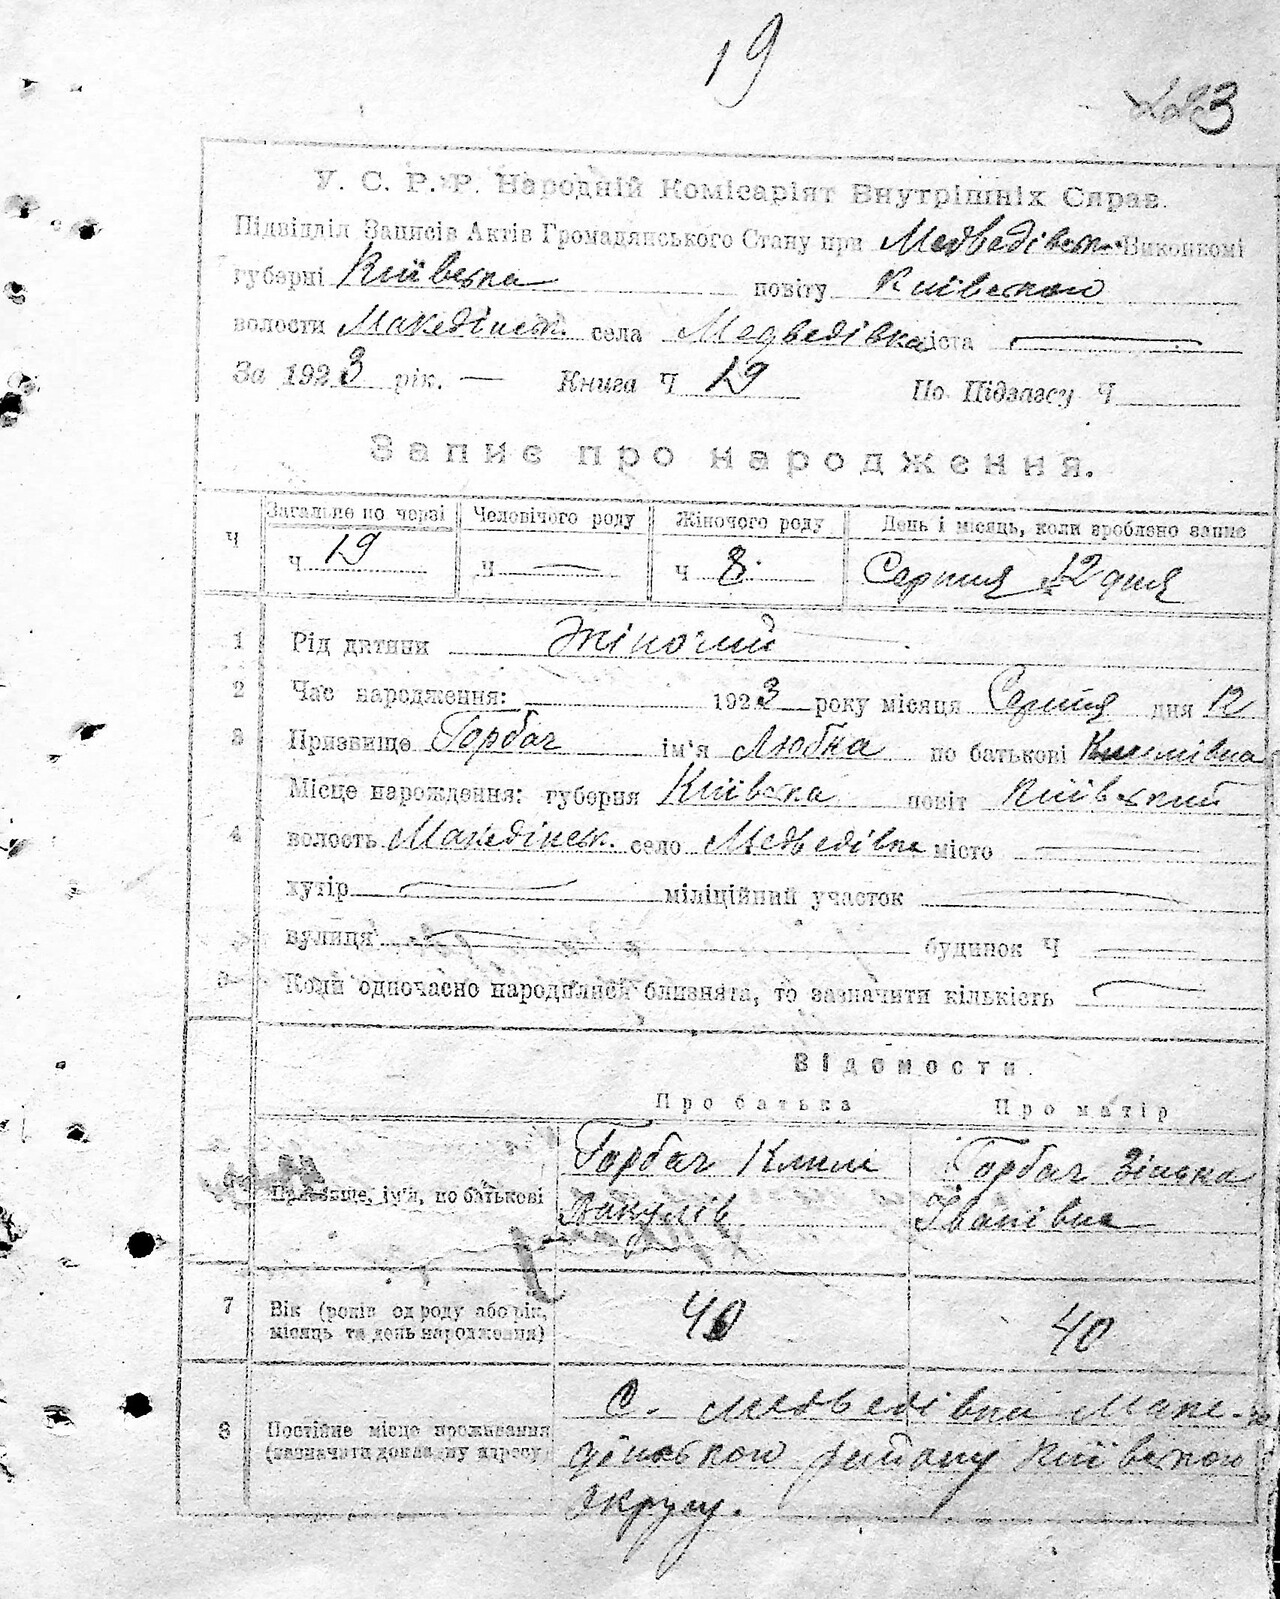 19
223
У. С. Р. Р. Народній Комісаріят Внутрішніх Справ.
Підвідділ Записів Актів Громадянського Стану при Медведівськ. Виконкомі
губерні Київська повіту Київською
волости Македінськ. села Медведівка міста
За 1923 рік. — Книга Ч 19 По Підзагсу Ч
Запис про народження.
Ч Загальне по черзі Человічого роду Жіночого роду День і місяць, коли зроблено запис
ч 19 ч — ч 8. Серпня 12 дня
1 Рід дитини Жіночий
2 Час народження: 1923 року місяця Серпня дня 12
3 Призвище Горбач ім'я Любка по батькові Климівна
Місце народження: губерня Київска повіт Київский
4 волость Македінськ. село Медведівка місто —
хутір — міліційний участок —
вулиця — будинок Ч —
5 Коли одночасно народилися близнята, то зазначити кількість —
Відомости
Про батька Про матір
Горбач Клим Горбач Зінька
6 Призвище, ім'я, по батькові Вакулів Іванівна
7 Вік (років од роду або рік, місяць та день народження) 40 40
8 Постійне місце проживання (зазначити докладну адресу)
С. Медведівка Маке-
дінською району Київською
округу.